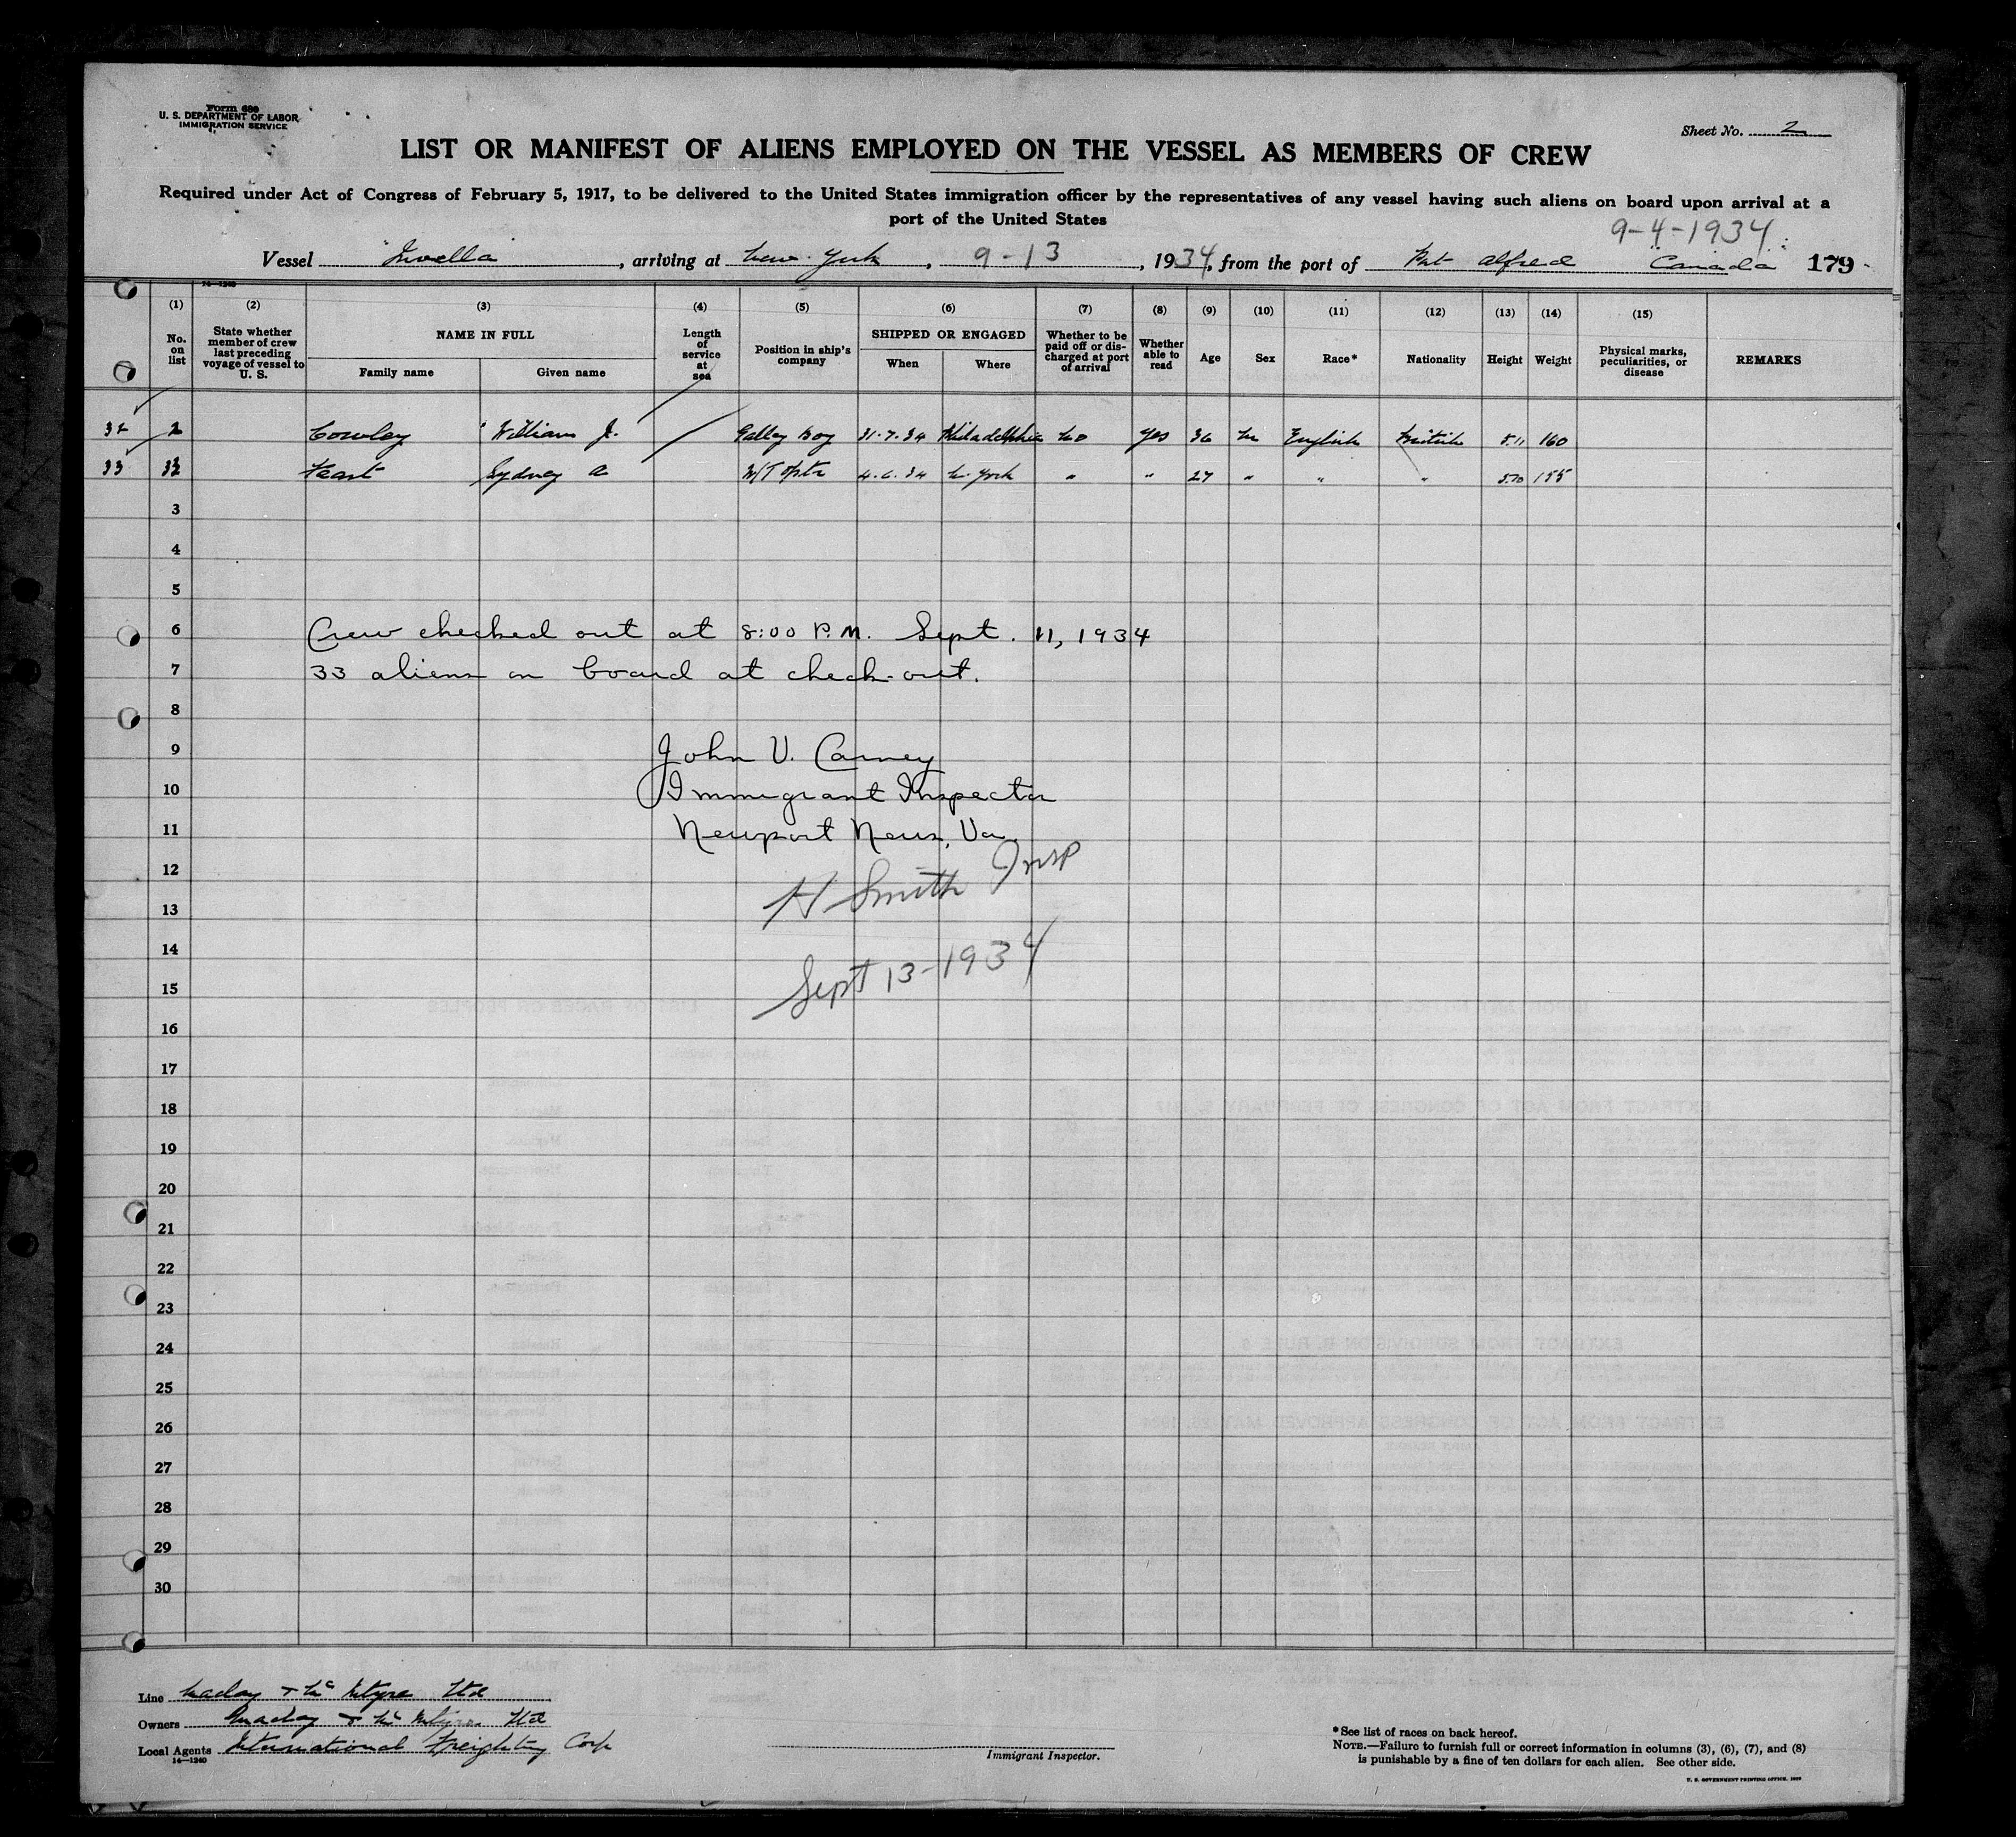 Form 680
U. S. DEPARTMENT OF LABOR
IMMIGRATION SERVICE
Sheet No. 2
LIST OR MANIFEST OF ALIENS EMPLOYED ON THE VESSEL AS MEMBERS OF CREW
Required under Act of Congress of February 5, 1917, to be delivered to the United States immigration officer by the representatives of any vessel having such aliens on board upon arrival at a
port of the United States
9-4-1934
Vessel , arriving at New York, 9-13, 1934, from the port of Port Alfred Canada 179
14—1240
(1) (2) (3) (4) (5) (6) (7) (8) (9) (10) (11) (12) (13) (14) (15)
No. on list
State whether member of crew last preceding voyage of vessel to U. S.
NAME IN FULL
Family name Given name
Length of service at sea
Position in ship's company
SHIPPED OR ENGAGED
When Where
Whether to be paid off or discharged at port of arrival
Whether able to read
Age
Sex
Race*
Nationality
Height
Weight
Physical marks, peculiarities, or disease
REMARKS
32 Cowley William J. Galley Boy 31.7.34 Philadelphia No Yes 36 M English British 5.11 160
33 Sydney A W/T Optr 4.6.34 N. York " " 27 " " " 5.10 155
3
4
5
6 Crew checked out at 8:00 P.M. Sept. 11, 1934
7 33 aliens on board at check-out.
8
9 John V. Carney
10 Immigrant Inspector
11 Newport News, Va.
12 H Smith Insp
13
14 Sept 13-1934
15
16
17
18
19
20
21
22
23
24
25
26
27
28
29
30
Line Maclay & McIntyre Ltd
Owners Maclay & McIntyre Ltd
Local Agents International Freighting Corp
14—1240
Immigrant Inspector.
*See list of races on back hereof.
NOTE.—Failure to furnish full or correct information in columns (3), (6), (7), and (8)
is punishable by a fine of ten dollars for each alien. See other side.